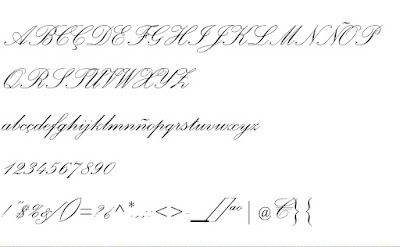 ABCÇDEFGHIJKLMNÑOP
QRSTUVWXYZ
abcçdefghijklmnñopqrstuvwxyz
1234567890
! "$%&/()=?¿^*.,;:<>-_[]ªº|@€}{